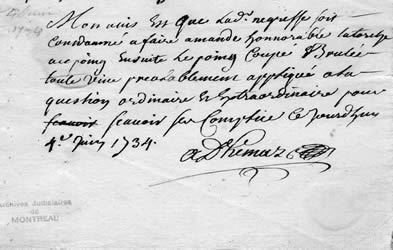 4e Juin
1734
Mon avis Est que Lad. negresse soit
Condamné a faire amande honnorable la torche
au poing Ensuite Le poing Coupé & Brulée
toute vive prealablement appliqué a la
question ordinaire Et Extraordinaire pour
scavoir scavoir ses Complice Ce jourdhuy
4e Juin 1734.
Archives Judiciaires
de
MONTREAL